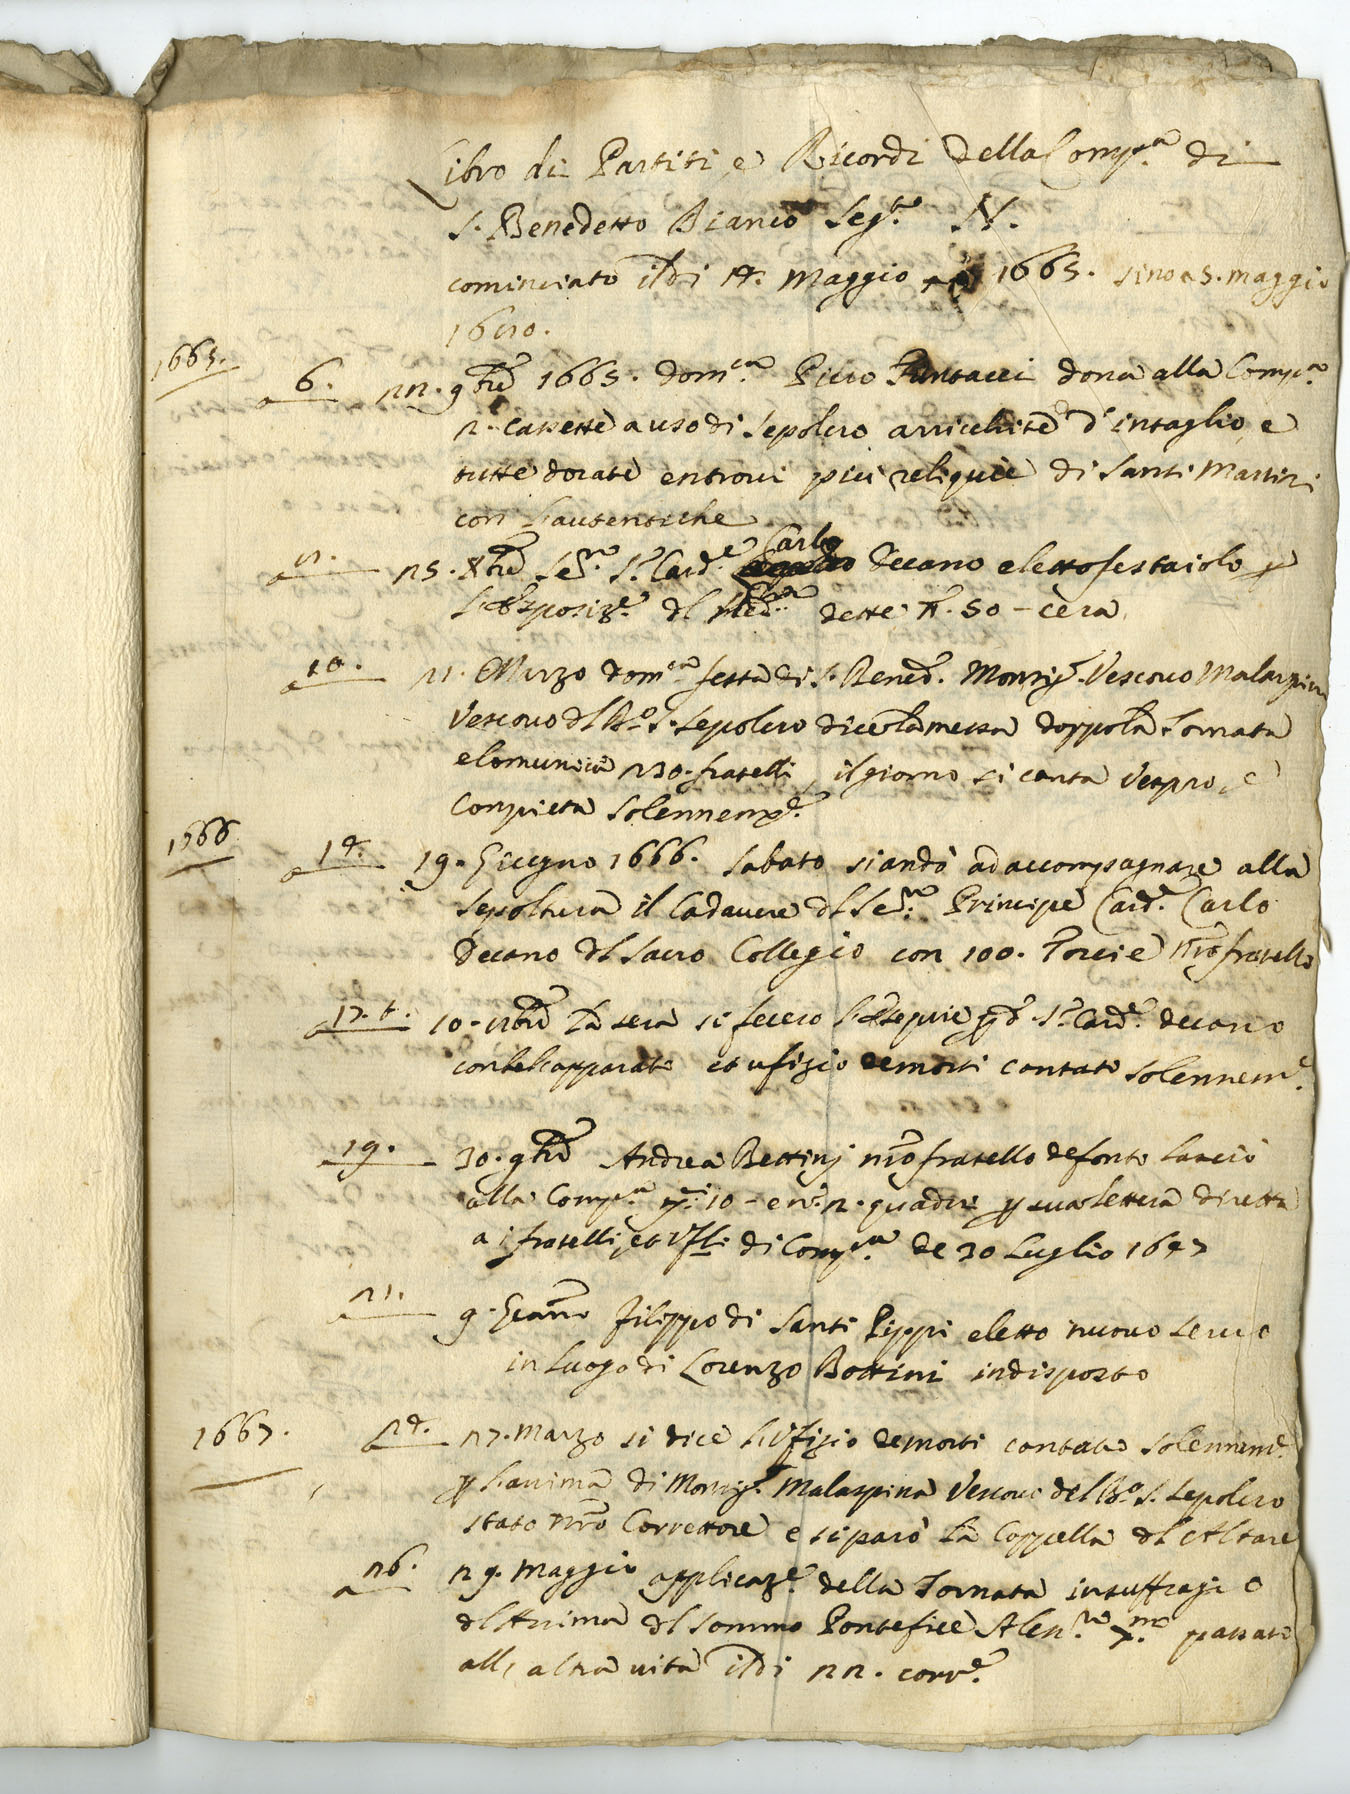 Libro di Partiti, e Ricordi della Comp.a di
S. Benedetto Bianco Seg.to N.
cominciato il dì 14. Maggio 1665. sino a 5. maggio
1665.
6. 22. 9bre 1665. dom.ca Piero donà alla Comp.a
2. cassette a uso di sepolcro arricchite d'intaglio, e
tutte dorate entrovi più reliquie di Santi Martiri
con l'autentiche
25. Xbre Ser.mo S.r Card.e Carlo Decano eletto festaiolo p
l'Esposiz.e dl dette 50 - cera
10. 21. Marzo dom.ca festa di S. Bened.o Monsig.r Vescovo Malaspina
Vescovo dl B.o S. Sepolcro dice la messa doppo la Tornata
e comunica 230. fratelli, il giorno si canta Vespro, e
Compieta solennem.e
1666
14. 19. Giugno 1666. Sabato si andò ad accompagnare alla
sepoltura il Cadavere dl Ser.mo Principe Card.e Carlo
Decano dl Sacro Collegio con 100. Torcie nro fratello
17. t. 10. 7bre la sera si fecero l'Esequie pd.o S.r Card.e decano
con bell'apparato et ufizio de morti cantato solennem.e
19. 30. 9bre Andrea Bettini nro fratello defonto lasciò
alla Comp.a 10 - e n.o 2. quadri p sua lettera diretta
a i fratelli, et Ufli di Comp.a de 30 Luglio 1647
21. 9. Genn.o Filippo di Santi Pippi eletto nuovo servo
in luogo di Lorenzo Bottini indisposto
1667.
24. 27. Marzo si dice l'Ufizio de morti cantato solennem.e
p l'anima di Monsig.r Malaspina Vescovo del B.o S. Sepolcro
stato nro Correttore e si parò la Cappella dl Altare
26. 29. Maggio applicaz.e della Tornata in suffragio
dl Anima dl sommo Pontefice Aless.ro 7.mo passato
all, altra vita il dì 22. corr.e